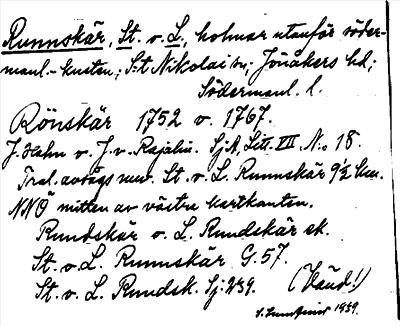 Runnskär, St. o. L., holmar utanför söder-
manl.-kusten; S:t Nikolai sn; Jönåkers hd;
Södermanl. l.
Rönskär 1752 o. 1767.
J. Hahn o. J. v. Rajalin. Sj.A. Litt. VII N:o 18.
Tral. avtags numr. St. o. L. Runnskär 9½ km.
NNÖ mitten av västra kartkanten.
Rundskär o. L. Rundskär sk.
St. o. L. Runnskär G. 57.
St. o. L. Rundsk. Sj: 239. (Vänd!)
1939.